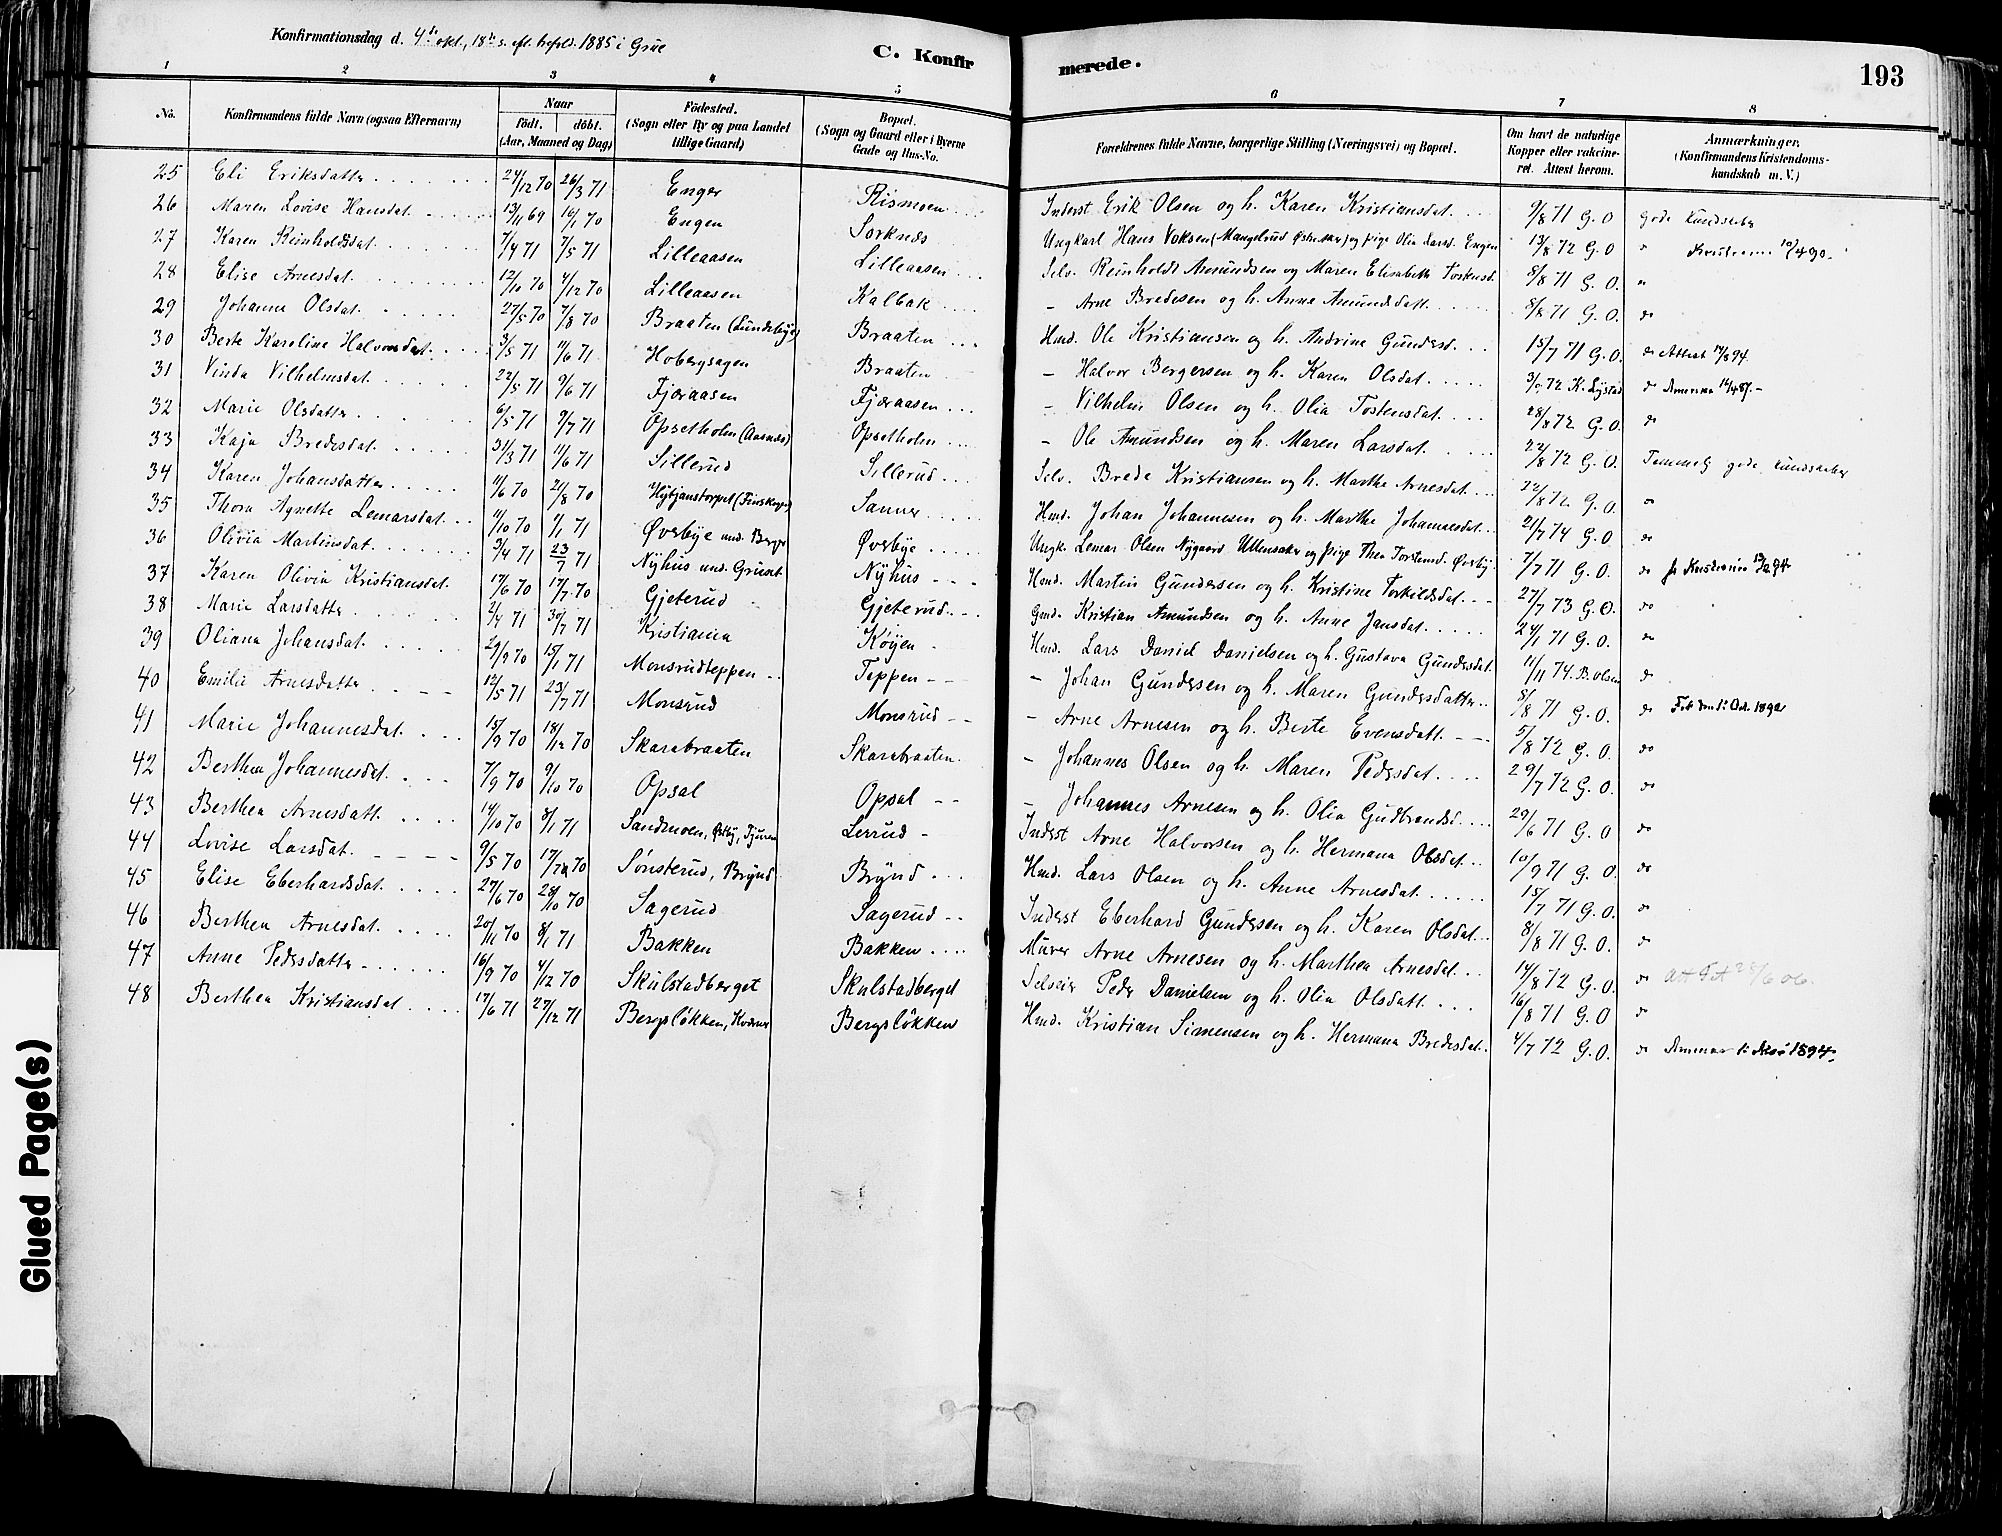 Konfirmationsdag d. 4de okt., 18de s. eft. trefold. 1885 i Grue
C. Konfirmerede.
193
1 2 3 4 5 6 7 8
No.
Konfirmandens fulde Navn (ogsaa Efternavn)
Naar
födt. döbt.
(Aar, Maaned og Dag)
Födested.
(Sogn eller By og paa Landet tillige Gaard)
Bopæl.
(Sogn og Gaard eller i Byerne Gade og Hus-No.
Forældrenes fulde Navne, borgerlige Stilling (Næringsvei) og Bopæl.
Om havt de naturlige Kopper eller vakcineret. Attest herom.
Anmærkninger.
(Konfirmandens Kristendomskundskab m. V.)
25 Eli Eriksdatter 24/12 70 26/3 71 Enger Riismoen Inderst Erik Olsen og h. Karen Kristiansdat. 9/8 71 G. O gode kundskaber
26 Maren Lovise Hansdat. 13/11 69 16/1 70 Engen Sorknes Ungkarl Hans Voksen (Mangelrud Østre aker) og pige Olia Larsd. Engen 13/8 72 G. O " Kristiania 10/4 90.
27 Karen Reinholdsdat. 7/4 71 7/5 71 Lilleaasen Lilleaasen Selv. Reinholdt Amundsen og Maren Elisabeth Tostensd. 8/8 71 G. O. "
28 Elise Arnesdat. 12/10 70 4/12 70 Lilleaasen Kalbak - Arne Bredesen og h. Anne Amundsdatt. 8/8 71 G. O. do
29 Johanne Olsdat. 27/5 70 7/8 70 Braaten (Lundebye) Braaten Hmd. Ole Kristiansen og h. Andrine Gundersd. 15/7 71 G. O. do Attest 14/3 94.
30 Berte Karoline Halvorsdat. 3/5 71 11/6 71 Hobergsagen Braaten - Halvor Bergersen og h. Karen Olsdat. 3/9 72 K. Lystad do Amerika 14/4 87.
31 Vinda Vilhelmsdat. 22/5 71 9/6 71 Fjæraasen Fjæraasen - Vilhelm Olsen og h. Olia Tostensdat. 28/8 72 G. O. do
32 Marie Olsdatter 6/5 71 9/7 71 Opsetholm (Aasnæs) Opsetholm - Ole Amundsen og h. Maren Larsdat. 22/8 72 G. O. Temmelig gode kundskaber
33 Kaja Bredesdat. 31/3 71 11/6 71 Sillerud Sillerud Selv. Brede Kristiansen og h. Marthe Arnesdat. 22/8 72 G. O. "
34 Karen Johansdatter 11/6 70 21/8 70 Hytjanstorpet (Finskogen) Sanner Hmd. Johan Johannesen og h. Marthe Johannesdat. 21/7 74 G. O do
35 Thora Agnette Lemarsdat. 11/10 70 1/1 71 Øverbye und. Berger Øverbye Ungk. Lemar Olsen Nygaard Ullensaker og pige Thea Torstensd. Øverby. 7/7 71 G. O. do
36 Olivia Martinsdat. 3/4 71 23/7 71 Nyhus und. Gruset Nyhus Hmd. Martin Gundersen og h. Kristine Torkildsdat. 27/7 73 G. O. do
37 Karen Olivia Kristiansdat. 17/6 70 17/7 70 Gjeterud Gjeterud Gmd. Kristian Amundsen og h. Anne Jansdat. 24/1 71 G. O. "
38 Marie Larsdatter 2/4 71 30/7 71 Kristiania Køyen Hmd. Lars Daniel Danielsen og h. Gustava Gundersdat. 11/11 74. B. Olsen do
39 Oliana Johansdat. 29/9 70 15/1 71 Monsrudteppen Teppen - Johan Gundersen og h. Maren Gundersdatter 8/8 71 G. O. do
40 Emilie Arnesdatter 12/5 71 23/7 71 Monsrud Monsrud - Arne Arnesen og h. Berte Evensdatt 5/8 72 G. O. do
41 Marie Johannesdat. 15/9 70 18/12 70 Skarabraaten Skarabraaten - Johannes Olsen og h. Maren Pedersdat. 29/7 72 G. O. do
42 Berthea Johannesdat. 7/9 70 9/10 70 Opsal Opsal - Johannes Arnesen og h. Olia Gudbrandsd. 29/6 71 G. O do
43 Berthea Arnesdatt. 14/10 70 8/1 71 Sandmoen, Østby, Tjuren Lerrud Inderst Arne Halvorsen og h. Hermana Olsdat. 10/9 71 G. O. do
44 Lovise Larsdat. 9/5 70 17/7 70 Sønsterud, Brynd Brynd Hmd. Lars Olsen og h. Anne Arnesdat. 15/7 71 G. O. "
45 Elise Eberhardsdat. 27/6 70 28/10 70 Sagerud Sagerud Inderst Eberhard Gundersen og h. Karen Olsdat. 8/8 71 G. O. do
46 Berthea Arnesdat. 20/11 70 8/1 71 Bakken Bakken Murer Arne Arnesen og h. Marthea Arnesdat. 14/8 72 G. O. do
47 Anne Pedersdatter 16/9 70 4/12 70 Skulstadberget Skulstadberget Selveier Peder Danielsen og h. Olia Olsdatt. 16/8 71 G. O do
48 Berthea Kristiansdat. 17/6 71 27/12 71 Bergsløkken, Hverner Bergsløkken Hmd. Kristian Simensen og h. Hermana Bredesdat. 4/7 72 G. O. do
Glued Page(s)